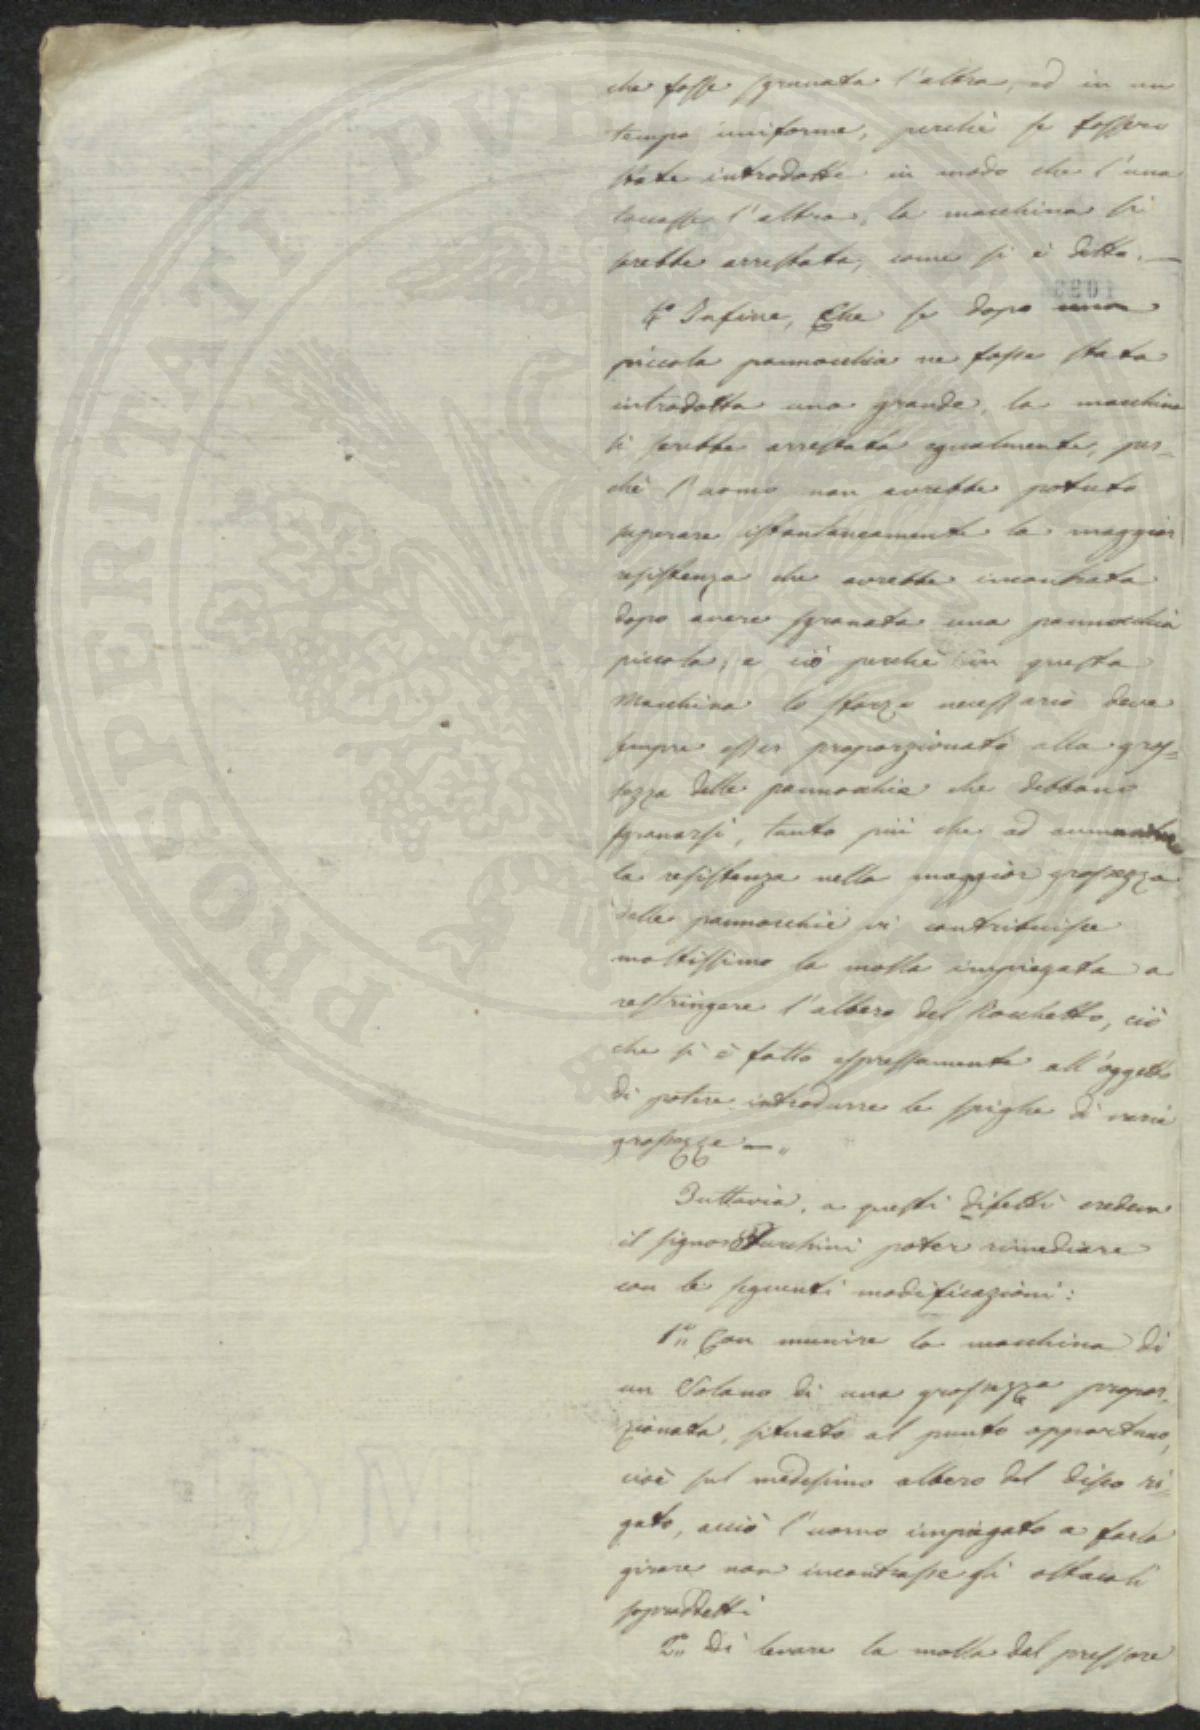 che fosse sgranata l'altra, ed in un
tempo uniforme, perchè se fossero
state introdotte in modo che l'una
toccasse l'altra, la macchina si
sarebbe arrestata, come si è detto. —
4.° Infine, Che se dopo una
piccola pannocchia ne fosse stata
introdotta una grande, la macchina
si sarebbe arrestata egualmente, per=
chè l'uomo non avrebbe potuto
superare istantaneamente la maggior
resistenza che avrebbe incontrata
dopo avere sgranata una pannocchia
piccola, e ciò perchè in questa
Macchina lo sforzo necessario deve
sempre esser proporzionato alla gros=
sezza delle pannocchie che debbano
sgranarsi, tanto più che ad aumentare
la resistenza nella maggior grossezza
delle pannocchie vi contribuisce
moltissimo la molla impiegata a
restringere l'albero del Rocchetto, ciò
che si è fatto espressamente all'oggetto
di potere introdurre le spighe di varie
grossezze —„
Tuttavia, a questi difetti credeva
il signor Turchini poter rimediare
con le seguenti modificazioni:
1.°„ Con munire la macchina di
un Volano di una grossezza propor=
zionata, situato al punto opportuno,
cioè sul medesimo albero del disco ri=
gato, acciò l'uomo impiegato a farla
girare non incontrasse gli ostacoli
sopraddetti
2.°„ Di levare la molla dal pressore
PROSPERITATI PVBLICAE